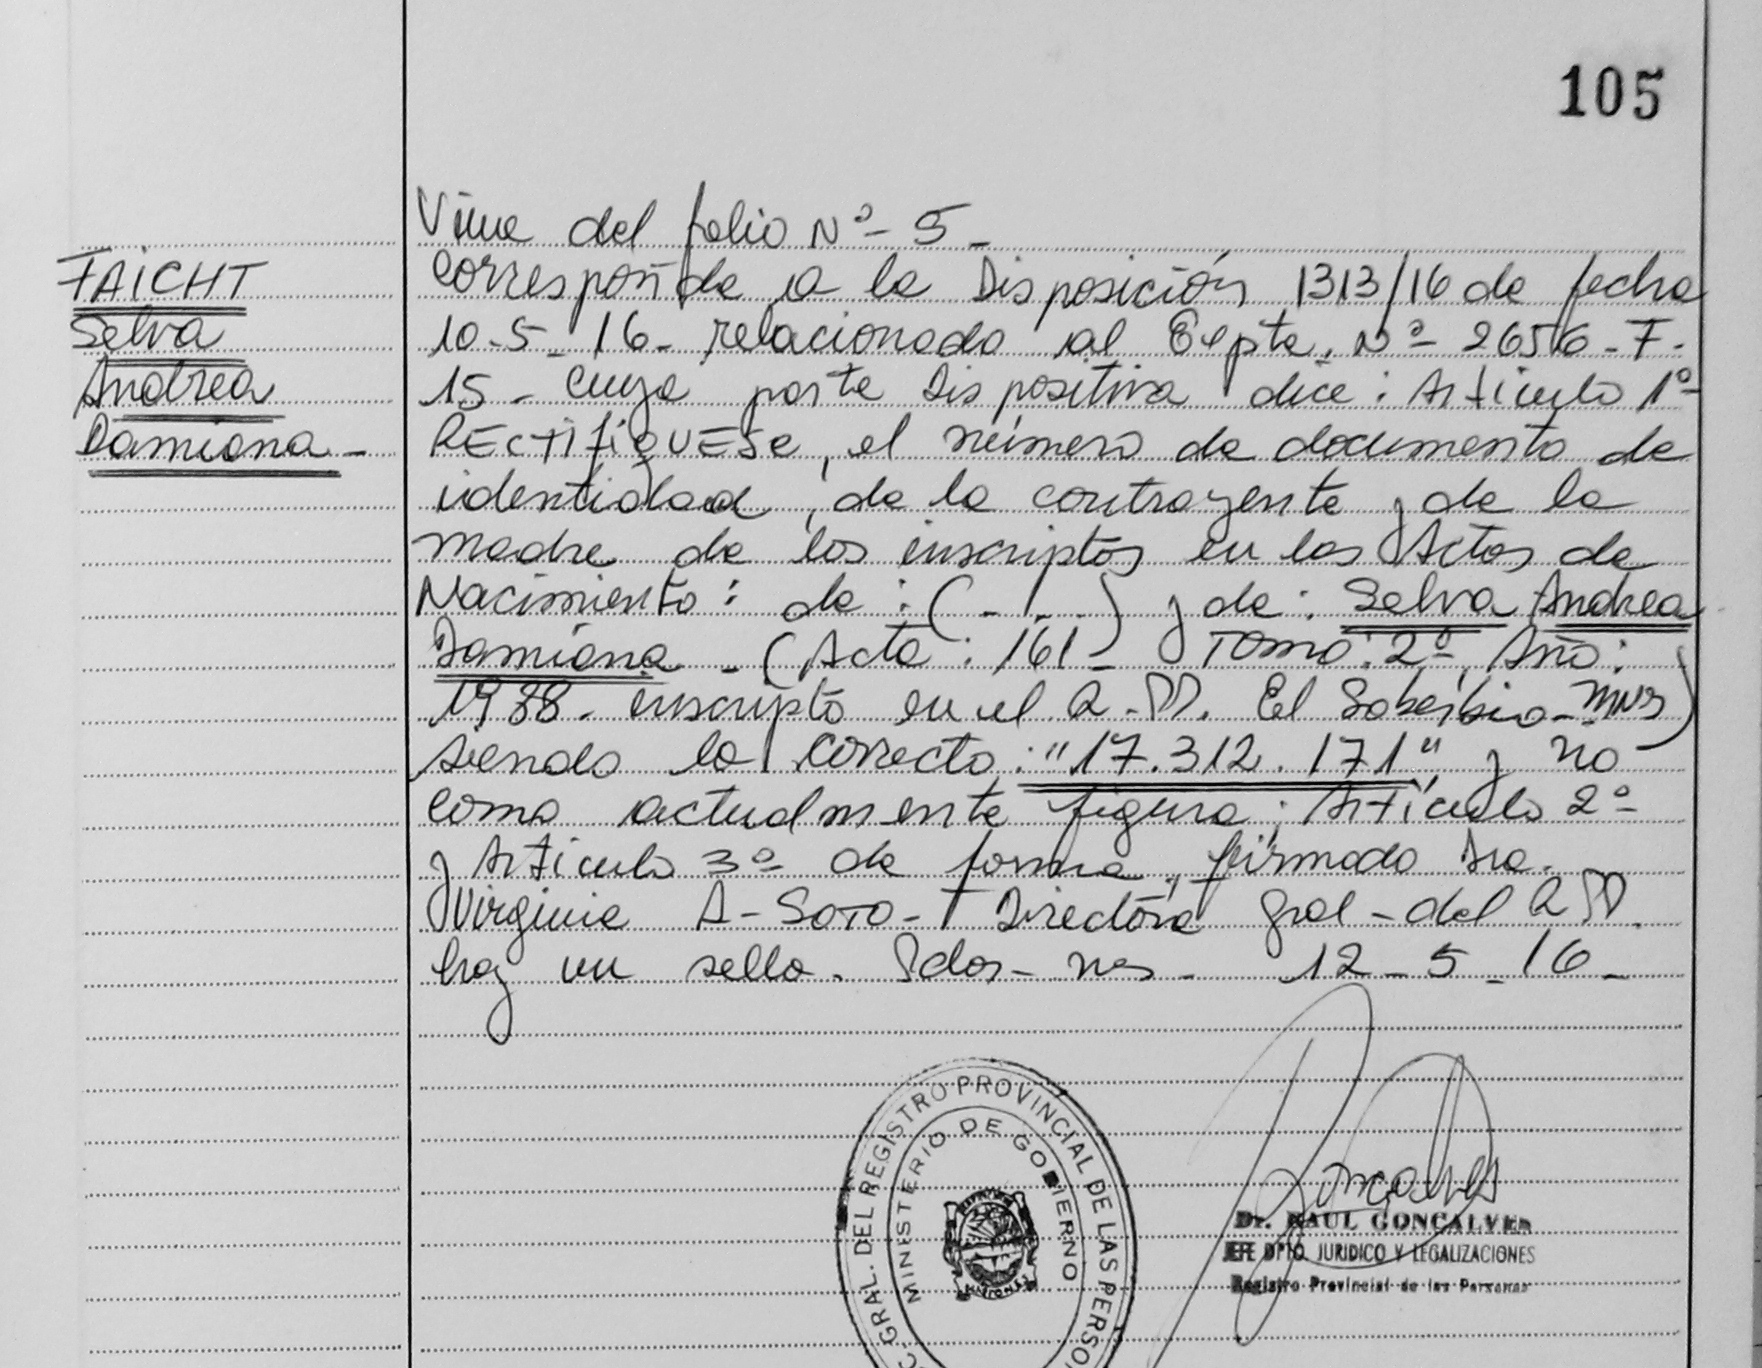 105
FAICHT
Selva
Andrea
Damiana -
Viene del folio Nº - 5 -
Corresponde a la Disposición 1313/16 de fecha
10-5-16- relacionado al Expte. Nº - 2656 - F -
15 - cuya parte Dispositiva dice: Articulo 1º-
RECTIFIQUESE, el número de documento de
identidad, de la contrayente y de la
madre de los inscriptos en las Actas de
Nacimiento: de: (- . - . -) y de: Selva Andrea
Damiana - (Acta: 161 - Tomo: 2º, Año:
1988 - inscripto en el R.PP. El Soberbio - Mns)
siendo lo correcto: "17.312.171" y no
como actualmente figura; Artículo 2º -
y Articulo 3º de forma, firmado Dra.
Virginia A - Soto - Directora Gral - del R PP.
hay un sello. Pdas - Mns - 12 - 5 - 16 -
GRAL. DEL REGISTRO PROVINCIAL DE LAS PERSO
MINISTERIO DE GOBIERNO
MISIONES
Goncalves
Dr. RAUL GONCALVES
JEFE DPTO. JURIDICO Y LEGALIZACIONES
Registro Provincial de las Personas